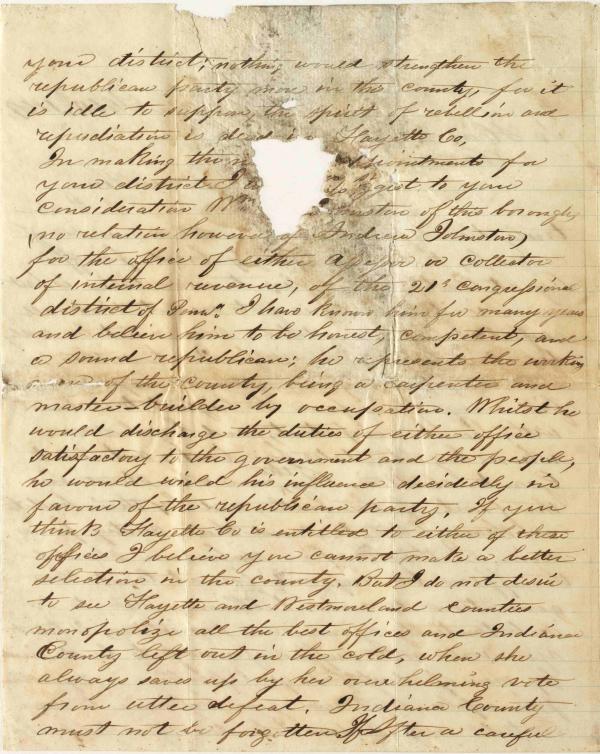 your district; nothing would strengthen the
republican party more in this county, for it
is idle to suppose the spirit of rebellion and
repudiation is dead in Fayette Co,
In making the appointments for
your district I to your
consideration Wm of this borough
(no relation however of Andrew Johnston)
for the office of either assessor or collector
of internal revenue, of the 21st congressional
district of Penna. I have known him for many years
and believe him to be honest, competent, and
a sound republican; he represents the working
of the county, being a carpenter and
master-builder by occupation. Whilst he
would discharge the duties of either office
satisfactory to the government and the people,
he would wield his influence decidedly in
favour of the republican party. If you
think Fayette Co is entitled to either of these
offices I believe you cannot make a better
selection in the county. But I do not desire
to see Fayette and Westmoreland counties
monopolize all the best offices and Indiana
County left out in the cold, when she
always saves us by her overhelming vote
from utter defeat. Indiana County
must not be forgotten. If after a careful